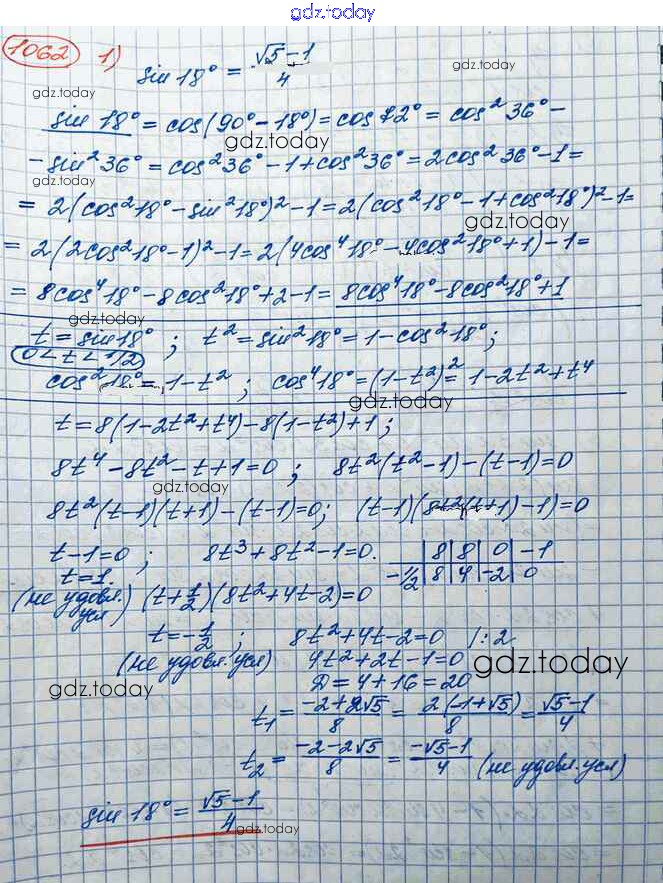 gdz.today
1062 1) sin 18° = (√5 - 1)/4
gdz.today
gdz.today
sin 18° = cos(90° - 18°) = cos 72° = cos² 36° -
gdz.today
- sin² 36° = cos² 36° - 1 + cos² 36° = 2cos² 36° - 1 =
gdz.today
= 2(cos² 18° - sin² 18°)² - 1 = 2(cos² 18° - 1 + cos² 18°)² - 1 =
gdz.today
= 2(2cos² 18° - 1)² - 1 = 2(4cos⁴ 18° - 4cos² 18° + 1) - 1 =
= 8cos⁴ 18° - 8cos² 18° + 2 - 1 = 8cos⁴ 18° - 8cos² 18° + 1
gdz.today
t = sin 18° ; t² = sin² 18° = 1 - cos² 18° ;
0 < t < 1/2
cos² 18° = 1 - t² ; cos⁴ 18° = (1 - t²)² = 1 - 2t² + t⁴
gdz.today
t = 8(1 - 2t² + t⁴) - 8(1 - t²) + 1 ;
8t⁴ - 8t² - t + 1 = 0 ; 8t²(t² - 1) - (t - 1) = 0
gdz.today
8t²(t - 1)(t + 1) - (t - 1) = 0 ; (t - 1)(8t²(t + 1) - 1) = 0
t - 1 = 0 ; 8t³ + 8t² - 1 = 0. | 8 | 8 | 0 | -1
t = 1. -1/2 | 8 | 4 | -2 | 0
(не удовл. усл) (t + 1/2)(8t² + 4t - 2) = 0
t = -1/2 ; 8t² + 4t - 2 = 0 | : 2
(не удовл. усл) 4t² + 2t - 1 = 0
gdz.today
gdz.today
D = 4 + 16 = 20
t₁ = (-2 + 2√5)/8 = 2(-1 + √5)/8 = (√5 - 1)/4
t₂ = (-2 - 2√5)/8 = (-√5 - 1)/4 (не удовл. усл)
sin 18° = (√5 - 1)/4
gdz.today